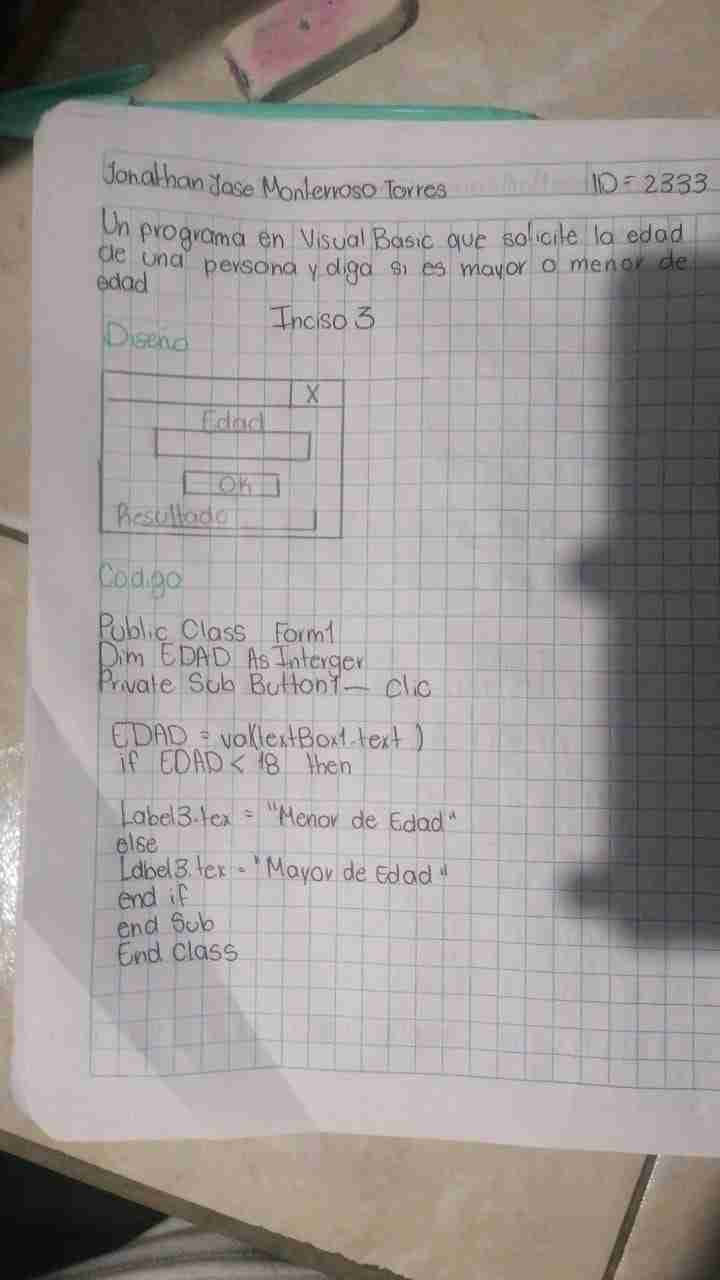 Jonathan Jose Monterroso Torres ID=2333
Un programa en Visual Basic que solicite la edad
de una persona y diga si es mayor o menor de
edad
Inciso 3
Diseño
X
Edad
OK
Resultado
Codigo
Public Class Form1
Dim EDAD As Interger
Private Sub Button1— Clic
EDAD = val(textBox1.text)
if EDAD < 18 then
Label3.tex = "Menor de Edad"
else
Label3.tex = "Mayor de Edad"
end if
end Sub
End Class